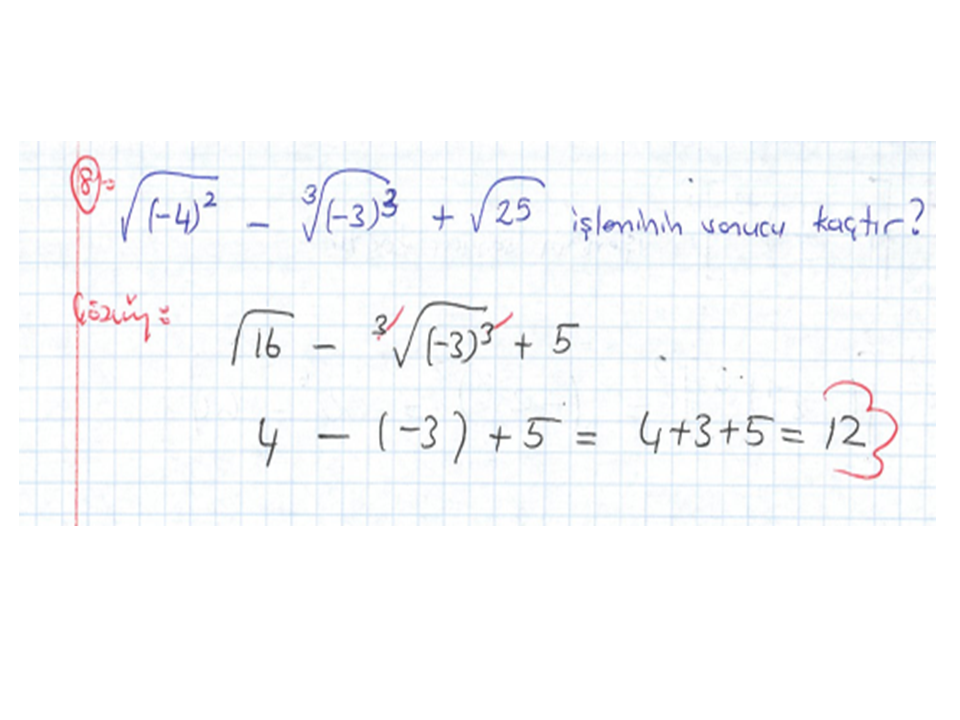 8)= √(-4)² - ³√(-3)³ + √25 işleminin sonucu kaçtır?
Çözüm:
√16 - ³√(-3)³ + 5
4 - (-3) + 5 = 4+3+5 = 12